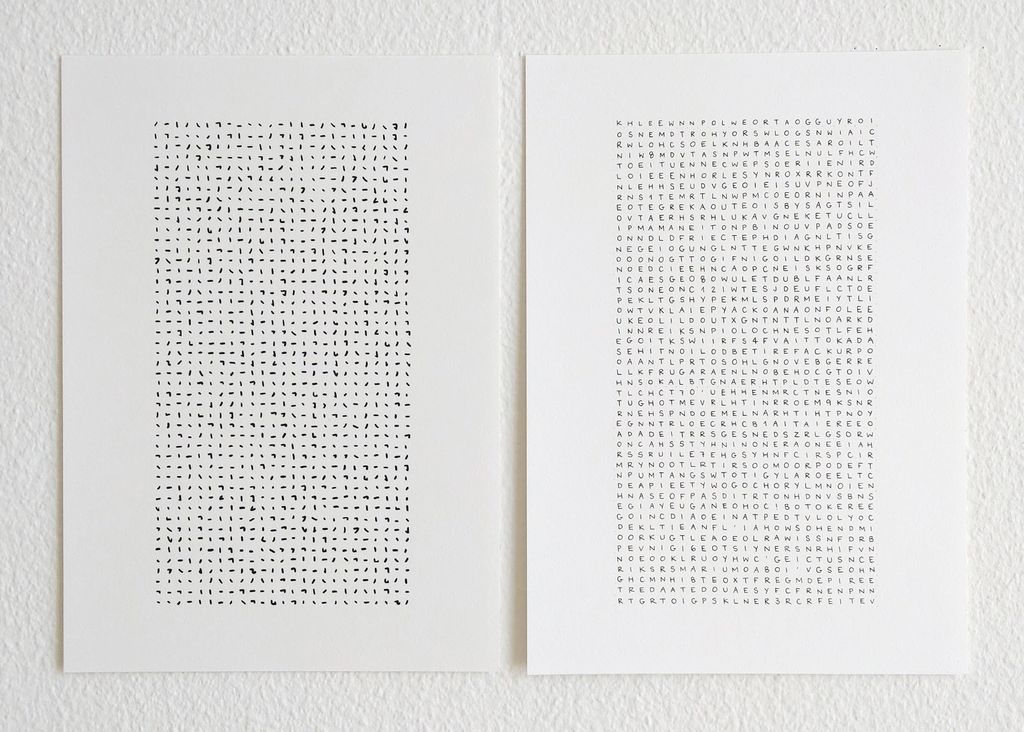 K H L E E W N N P O L W E O R T A O G G U Y R O I
O S N E M D T R O H Y O R S W L O G S N W I A I C
R W L O H C S O E L K N H B A A C E S A R O I L T
N I W 8 M D V T A S N P W T M S E L N U L F H C W
T O E I T U E N N E C W E P S O E R I I E N I R D
L O I E E E N H O R L E S Y N R O X R R K O N T F
N L E H H S E U D V G E O I E I S U V P N E O F J
R N S 1 T E M R T L N W P M C O E O R N I N P A A
E O T E G R E K A O U T E O I S B Y S A G T S I L
O V T A E R H S R H L U K A V G N E K E T U C L L
I P M A M A N E I T O N P B I N O U V P A D S O E
O N N D L D F R I E C T E P H D I A G N L T I S G
N E G E I O G U N G L N T T E G W N K H P N V K E
O O O N O G T T O G I F N I G O I L D K G R N S E
N O E D C I E E H N C A O P C N E I S K S O G R F
I C A E S G E O 8 O W U L E T D U B L F A A N L R
T S O N E O N C 1 2 I W T E S J D E U F L C T O E
P E K L T G S H Y P E K M L S P D R M E I Y T L I
O W T V K L A I E P Y A C K O A N A O N F O L E E
U K E O L I L D O U T X G N T N T T L N O A R K D
I N N R E I K S N P I O L O C H N E S O T L F E H
E G O I T K S W I I R F S 4 F V A I T T O K A D A
S E H I T N O I L O D B E T I R E F A C K U R P O
O A A N T L P R T O S O H L G N O V E B G E R R E
L L K F R U G A R A E N L N O B E H O C G T O I V
H N S O K A L B T G N A E R H T P L D T E S E O W
T L C H C T 7 0 ' U E H H E N M R C T N E S N I O
T U G H O T M E V R L H T I N R R O E M 9 K S N R
R N E H S P N D O E M E L N A R H T I H T P N O Y
E G N N T R L O E C R H C B 1 A I T A I E R E E O
A D A D E I T R R S G E S N E D S Z R L G S D R W
O N C A H S S T Y H N I N O N E R A O N E E I A H
R S S R U I L E 7 E H G S Y H N F C I R S P C I R
M R Y N O O T L R T I R S O O M O O R P O D E F T
N P U M T A N G S W T O T I G Y L A R O E E L T C
D E A P I E E T Y W O G O C H O R Y L M N O I E N
H N A S E O F P A S D I T R T O N H D N V S B N S
E G I A Y E U G A N E O H O C ! B O T O K E R E E
G O I N C D I A O E I N A T P E D T V L O L Y O C
D E K L T I E A N F L ' I A H O W S O H E N D M I
O O R K U G T L E A O E D L R A W I S S N F D R B
P E V N I G I 6 E O T S I Y N E R S N R H I F V N
N O E O O K L R U O Y H W C ' G E I C T U S N C E
R I K S R S M A R I U M O A B O I ' V G S E O H N
G H C M N H I B T E O X T F R E G M D E P I R E E
T R E D A A T E D O U A E S Y F C F R N E N P N N
R T G R T O I G P S K L N E R 3 R C R F E I T E V